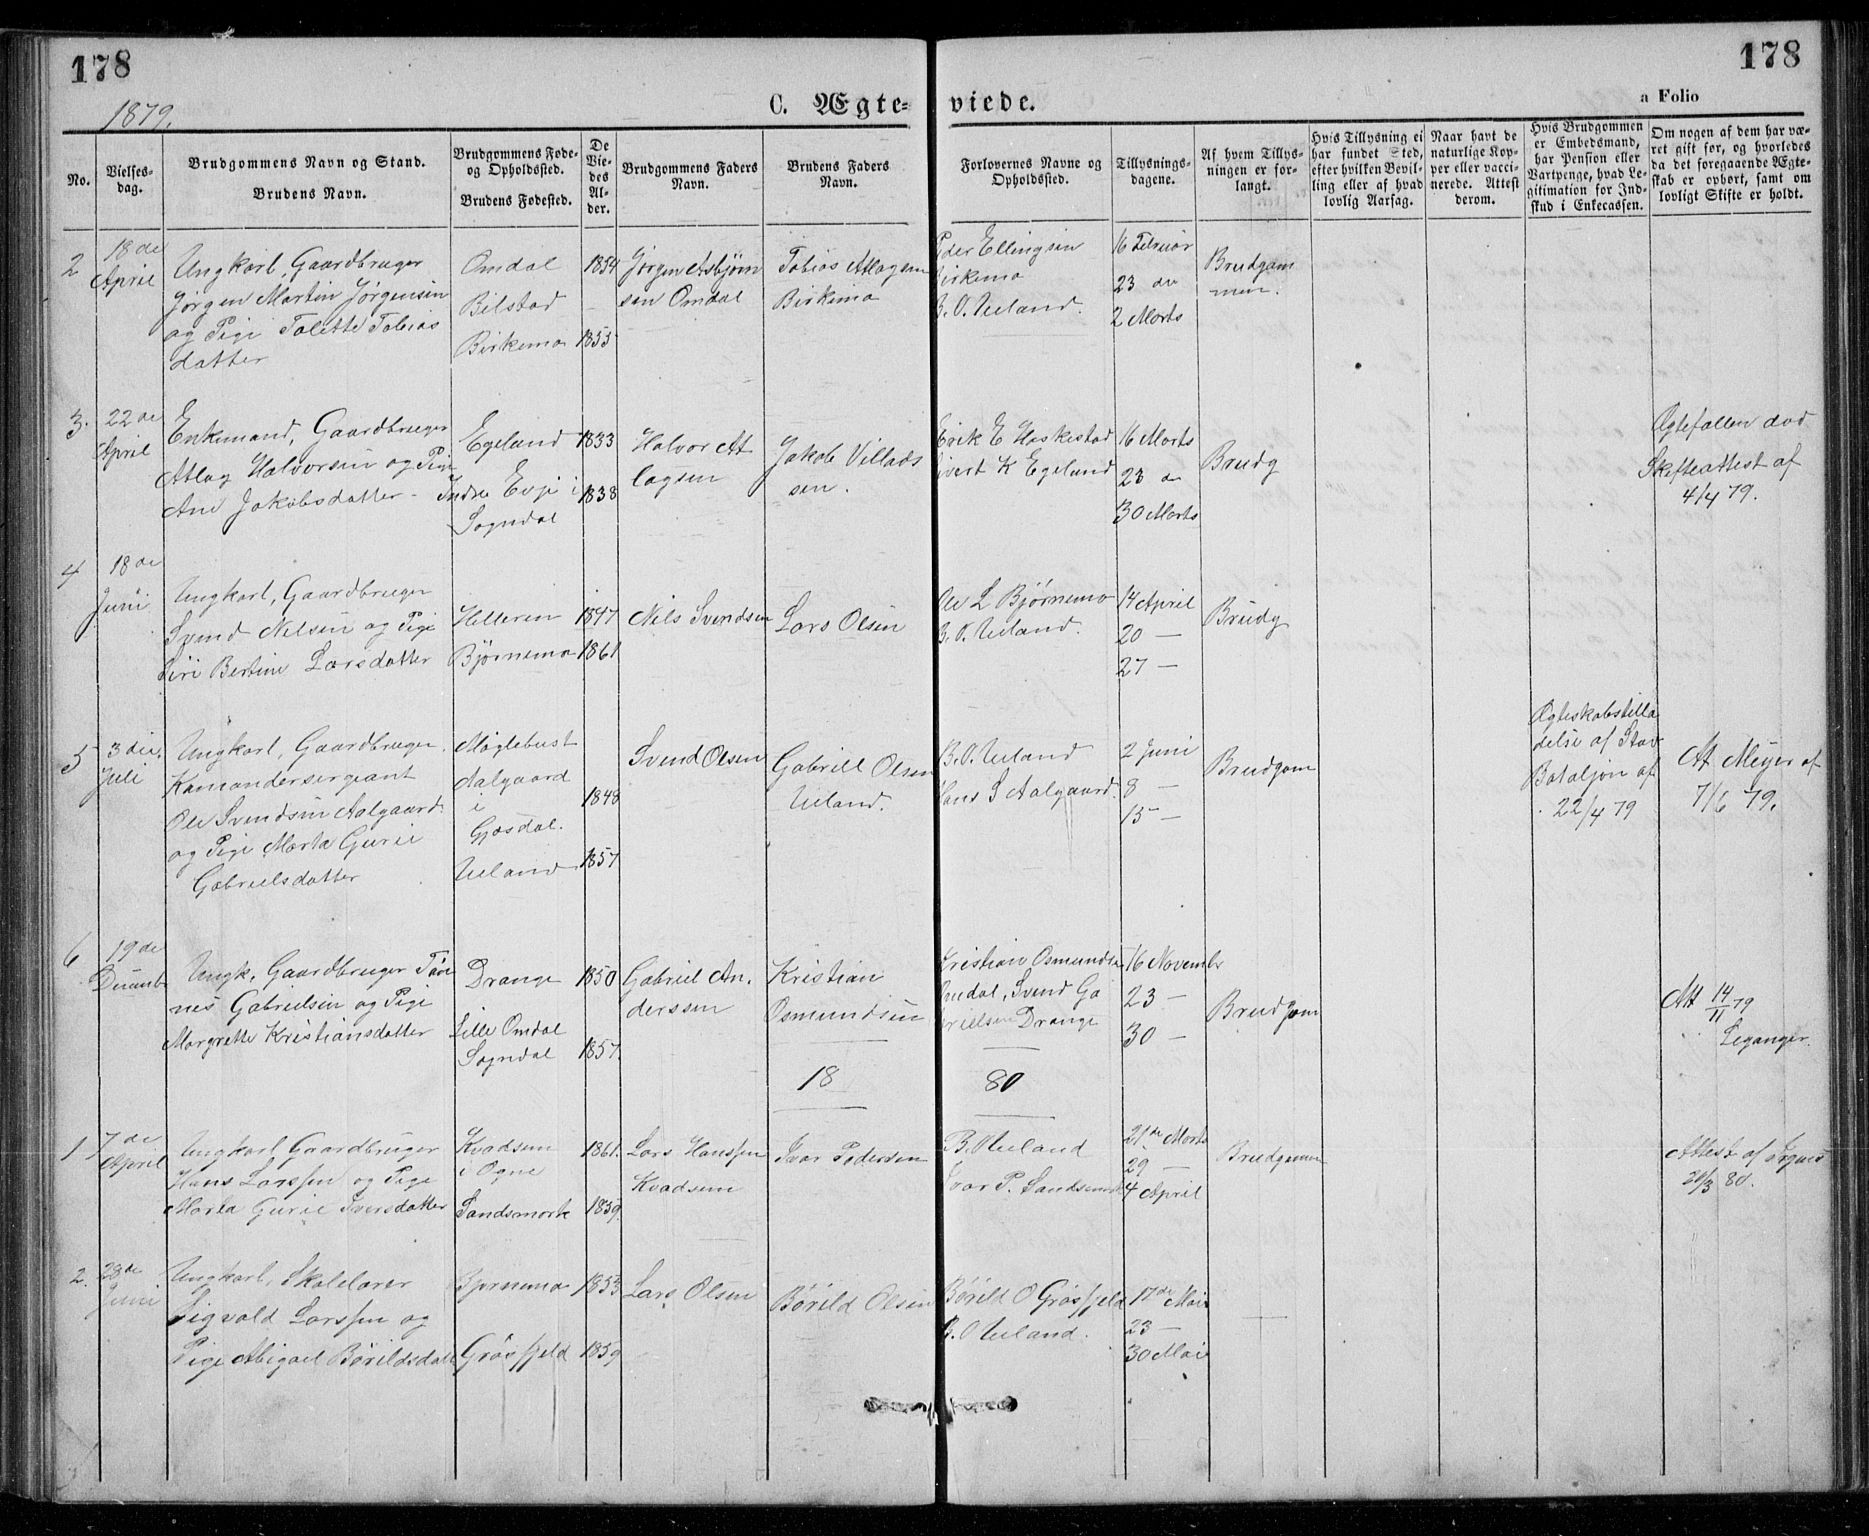 178
178
1879.
C. Ægte-
viede.
a Folio
No.
Vielses-
dag.
Brudgommens Navn og Stand.
Brudens Navn.
Brudgommens Føde-
og Opholdssted.
Brudens Fødested.
De
Vie-
des
Al-
der.
Brudgommens Faders
Navn.
Brudens Faders
Navn.
Forlovernes Navne og
Opholdssted.
Tillysnings-
dagene.
Af hvem Tillys-
ningen er for-
langt.
Hvis Tillysning ei
har fundet Sted,
efter hvilken Bevil-
ling eller af hvad
lovlig Aarsag.
Naar havt de
naturlige Kop-
per eller vacci-
nerede. Attest
derom.
Hvis Brudgommen
er Embedsmand,
har Pension eller
Vartpenge, hvad Le-
gitimation for Ind-
skud i Enkecassen.
Om nogen af dem har væ-
ret gift før, og hvorledes
da det foregaaende Ægte-
skab er ophørt, samt om
lovligt Skifte er holdt.
2
18de
April
Ungkarl, Gaardbruger
Jørgen Martin Jørgensen
og Pige Talette Tobias
datter
Omdal
Bilstad
Birkemo
1854
1855
Jørgen Asbjørn
sen Omdal
Tobias Atlagsen
Birkemo
Peder Ellingsen
Birkemo
B. O. Ueland.
16 Februar
23 do
2 Marts
Brudgom
men.
3.
22de
April
Enkemand, Gaardbruger
Atlag Halvorsen og Pige
Ane Jakobsdatter
Egeland
Indre Evje i
Sogndal
1833
1838
Halvor At
lagsen
Jakob Villads
sen.
Eerik E Haskestad
Sivert K Egeland
16 Marts
23 do
30 Marts
Brudg
Ægtefællen død
Skifteattest af
4/4 79.
4
18de
Juni
Ungkarl, Gaardbruger
Svend Nilsen og Pige
Siri Bertine Larsdatter
Helleren
Bjørnemo
1847
1861
Nils Svendsen
Lars Olsen
Ole L Bjørnemo
B. O. Ueland.
14 April
20 —
27 —
Brudg
5
3die
Juli
Ungkarl, Gaardbruger
Kamandersergeant
Ole Svendsen Aalgaard
og Pige Marta Gurie
Gabrielsdatter
Møglebust
Aalgaard
i
Gjæsdal.
Ueland
1848
1857
Svend Olsen
Gabriel Olsen
Ueland.
B. O. Ueland
Hans S Aalgaard.
2 Juni
8 —
15 —
Brudgom
Ægteskabstilla
delse af Stav
Bataljon af
22/4 79
At Meyer af
7/6 79.
6
19de
Decemb
Ungk, Gaardbruger Tøn
nes Gabrielsen og Pige
Margrethe Kristiansdatter
Drange
Lille Omdal
Sogndal
1850
1857.
Gabriel An.
derssen
Kristian
Osmundsen
Kristian Osmundsen
Omdal, Svend Ga
brielsen Drange
16 Novembr
23 —
30 —
Brudgom
Att 14/11 79
Leganger.
18 80
1
7de
April
Ungkarl, Gaardbruger
Hans Larssen og Pige
Marta Gurie Iversdatter
Kvadsem
i Ogne
Sandsmork
1861.
1859.
Lars Hanssen
Kvadsem
Ivar Pedersen
B. O Ueland
Ivar P. Sandsmork
21de Marts
29 —
4 April
Brudgommen
Attest af
20/3 80.
2.
28de
Juni
Ungkarl, Skolelærer
Sigvald Larssen og
Pige Abigael Børildsdatt
Bjørnemo
Grøsfjeld
1853
1859
Lars Olsen
Børild Olsen
Børild O Grøsfjeld
B. O Ueland.
17de Mai
23 —
30 Mai